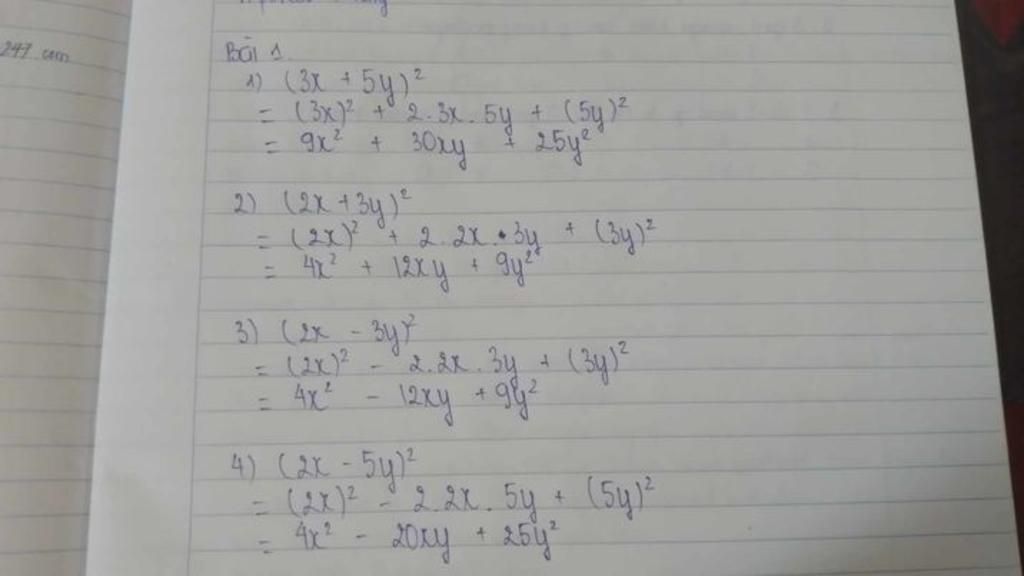 247 cm
Bài 1.
1) (3x + 5y)²
= (3x)² + 2.3x.5y + (5y)²
= 9x² + 30xy + 25y²
2) (2x + 3y)²
= (2x)² + 2.2x.3y + (3y)²
= 4x² + 12xy + 9y²
3) (2x - 3y)²
= (2x)² - 2.2x.3y + (3y)²
= 4x² - 12xy + 9y²
4) (2x - 5y)²
= (2x)² - 2.2x.5y + (5y)²
= 4x² - 20xy + 25y²